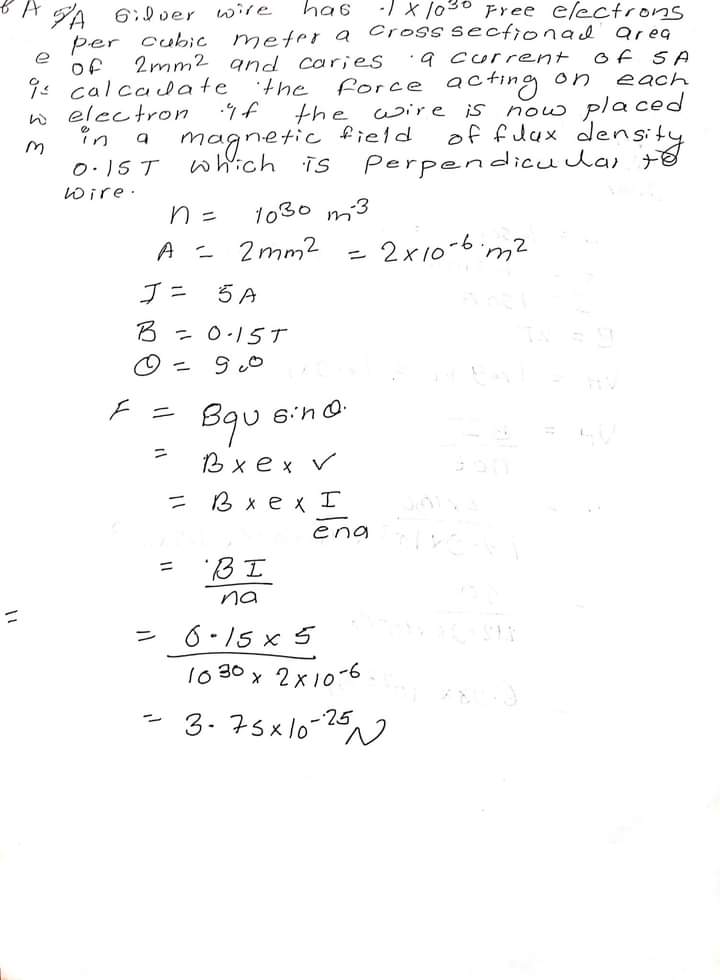 A silver wire has 1 x 10³⁰ Free electrons
per cubic meter a cross sectional area
of 2mm² and caries a current of 5A
calculate the force acting on each
electron if the wire is now placed
in a magnetic field of flux density
0.15T which is perpendicular to
wire.
n = 10³⁰ m⁻³
A = 2mm² = 2x10⁻⁶ m²
I = 5A
B = 0.15T
θ = 90
F = Bqv sinθ.
= B x e x v
= B x e x I
ena
= BI
na
=
= 0.15 x 5
10³⁰ x 2x10⁻⁶
= 3.75x10⁻²⁵ N